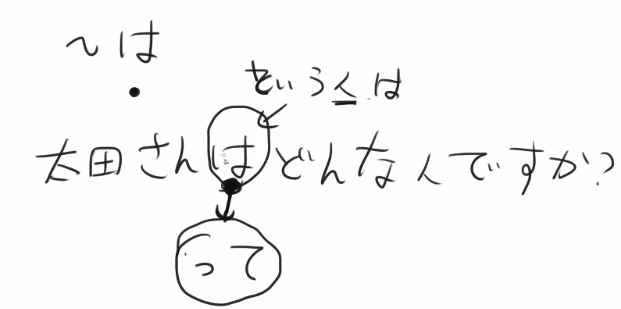 ～は
という人は
太田さんはどんな人ですか?
って